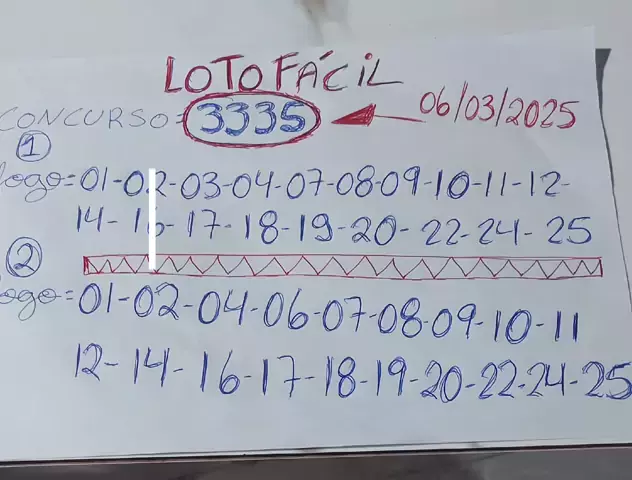 LOTOFÁCIL
CONCURSO= 3335 06/03/2025
1
Jogo=01-02-03-04-07-08-09-10-11-12-
14-16-17-18-19-20-22-24-25
2
ogo=01-02-04-06-07-08-09-10-11
12-14-16-17-18-19-20-22-24-25